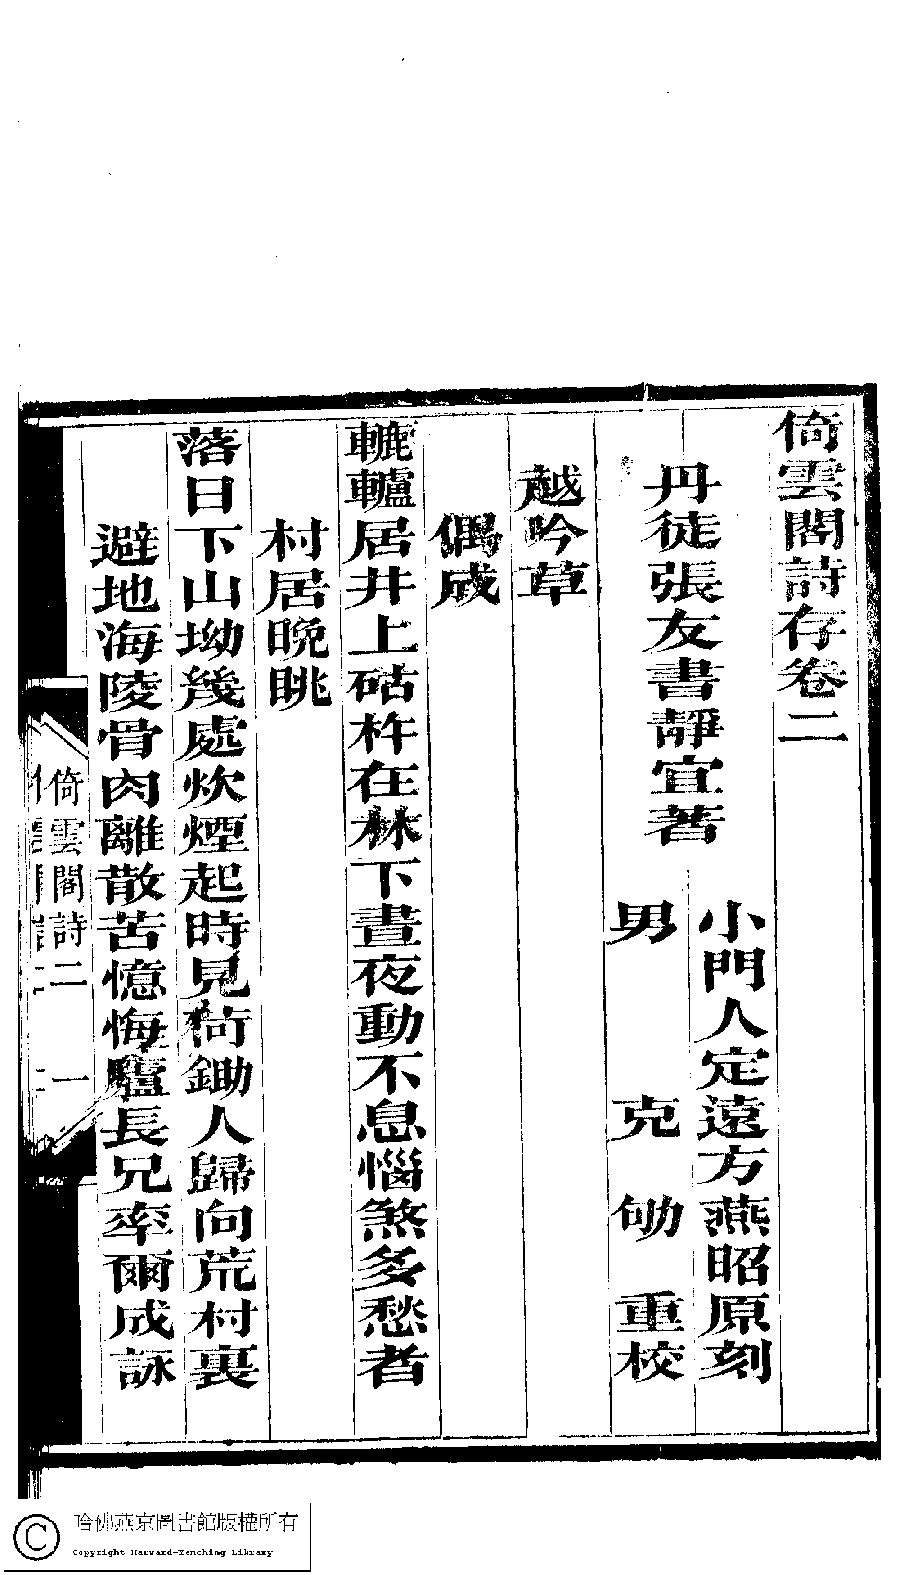 倚雲閣詩存卷二
丹徒張友書靜宜著
小門人定遠方燕昭原刻
男克劬重校
越吟草
偶成
轆轤居井上砧杵在牀下晝夜動不息惱煞多愁者
村居晚眺
落日下山坳幾處炊煙起時見荷鋤人歸向荒村裏
避地海陵骨肉離散苦憶悔廬長兄率爾成詠
倚雲閣詩二 一
哈佛燕京圖書館版權所有
Copyright Harvard-Yenching Library